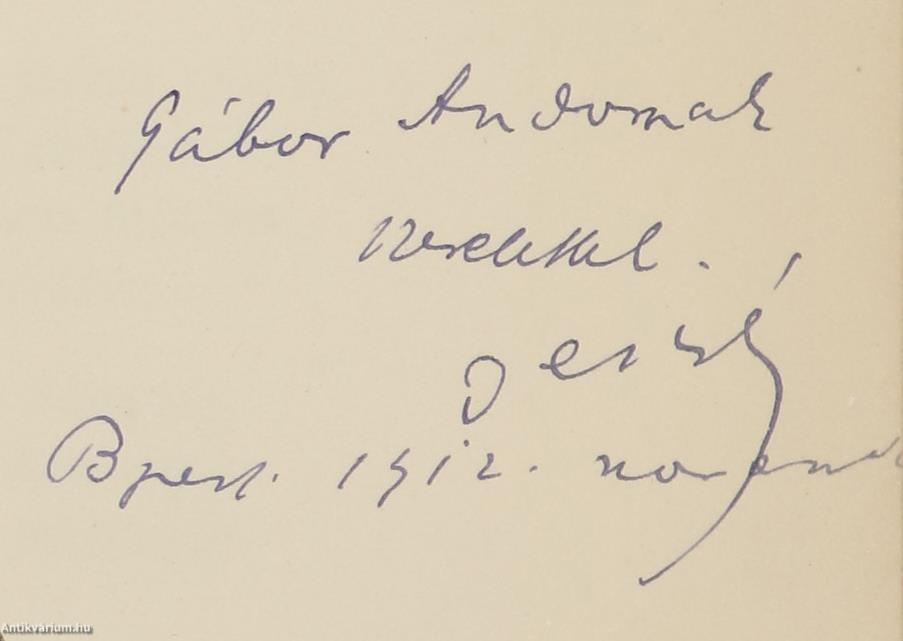 Gábor Andornak
szeretettel.
Jenő
Bpest. 1912. novemb
Antikvárium.hu